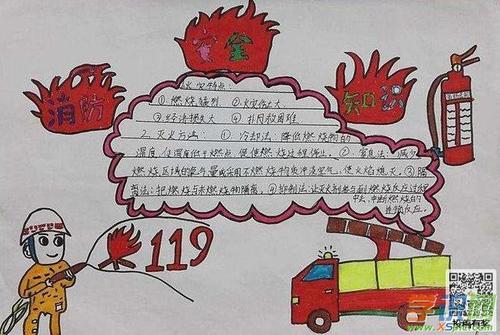 安全
消防
知识
火灾特点:
①燃烧猛烈 ②火灾伤亡大
③经济损失大 ④扑救困难
2.灭火方法: ①冷却法:降低燃烧物的
温度,使温度低于燃点,促使燃烧过程停止。②窒息法:减少
燃烧区域的氧气量或采用不燃烧物质冲淡空气,使火焰熄灭。③隔
离法:把燃烧与未燃烧物隔离。④抑制法:让灭火剂参与到燃烧反应过程
中去,中断燃烧的
连锁反应。
119